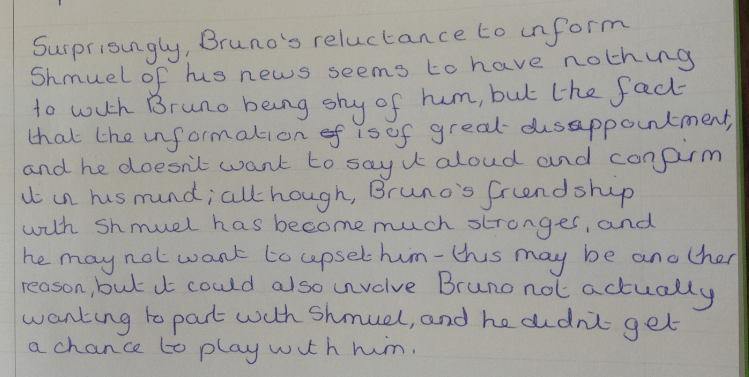 Surprisingly, Bruno's reluctance to inform
Shmuel of his news seems to have nothing
to with Bruno being shy of him, but the fact
that the information of is of great disappointment,
and he doesn't want to say it aloud and confirm
it in his mind; although, Bruno's friendship
with Shmuel has become much stronger, and
he may not want to upset him - this may be another
reason, but it could also involve Bruno not actually
wanting to part with Shmuel, and he didn't get
a chance to play with him.